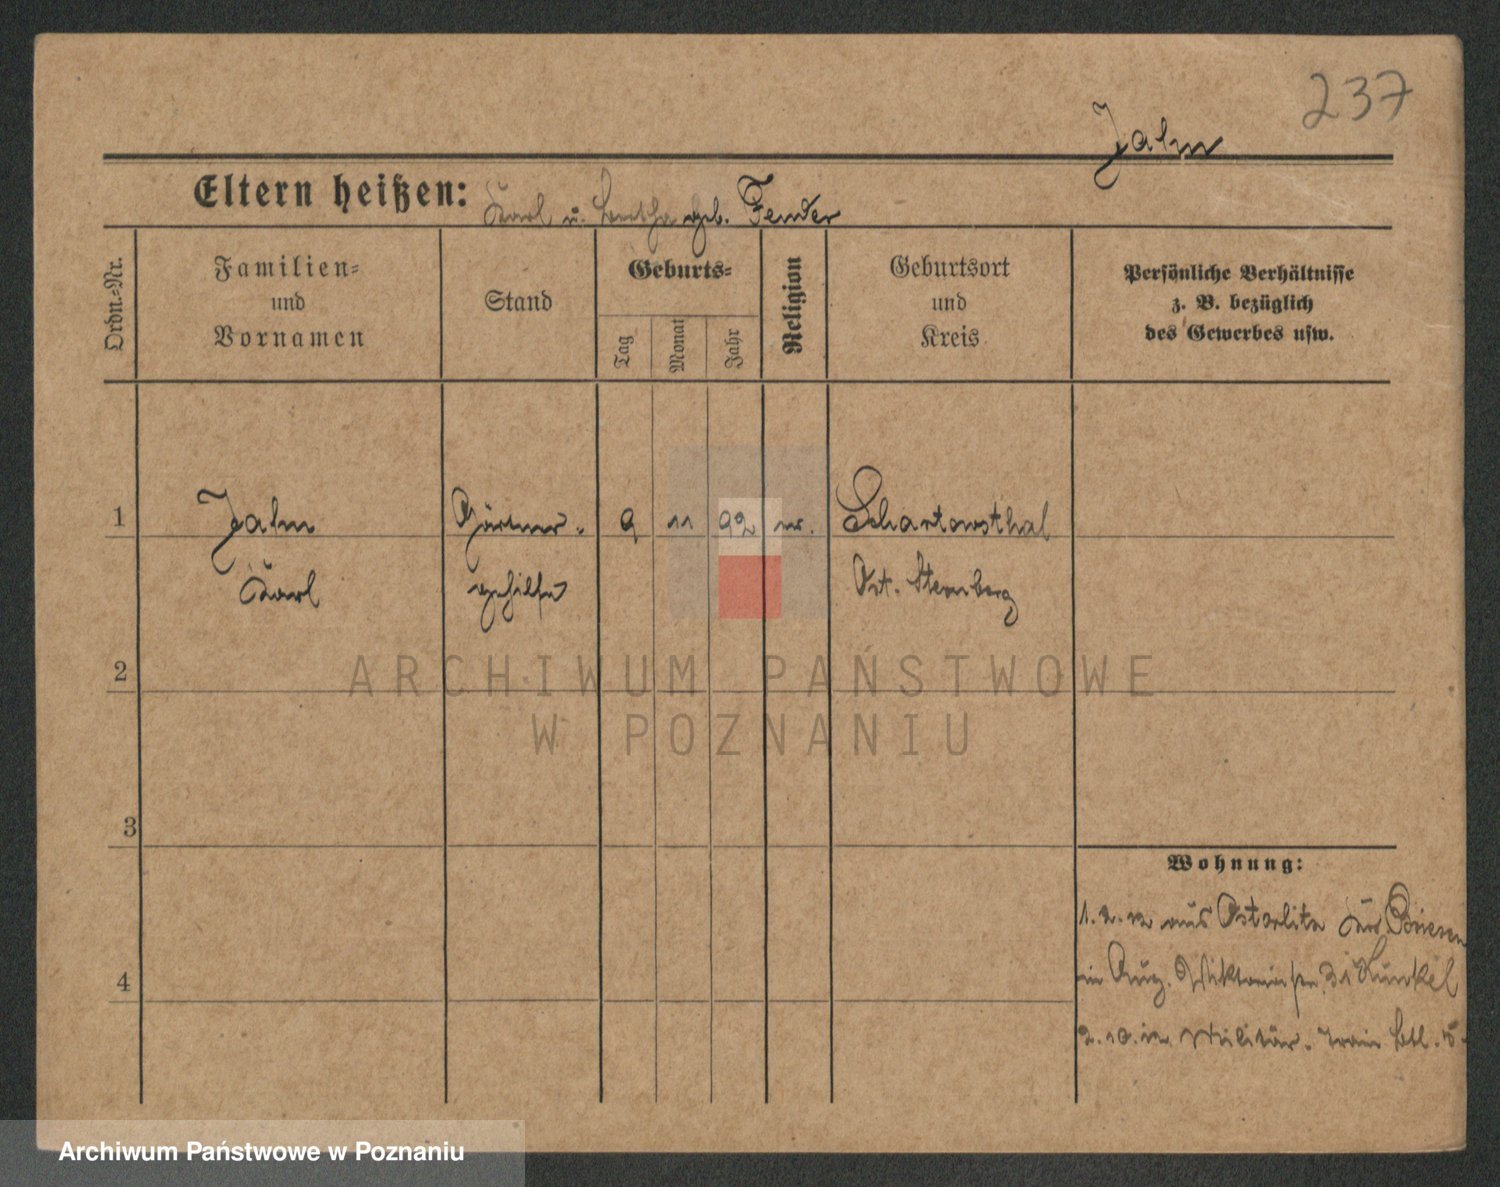 237
Jahn
Eltern heißen: Karl u. Bertha geb. Fender
Ordn.-Nr.
Familien-
und
Vornamen
Stand
Geburts-
Tag
Monat
Jahr
Religion
Geburtsort
und
Kreis
Persönliche Verhältnisse
z. B. bezüglich
des Gewerbes usw.
1
Jahn
Karl
Gärtner-
gehilfe
9
11
92
Schartowsthal
Ost. Sternberg
2
3
4
Wohnung:
aus Briesen
31 Kunkel
Militär. Train Btl. 5.
ARCHIWUM PAŃSTWOWE
W POZNANIU
Archiwum Państwowe w Poznaniu